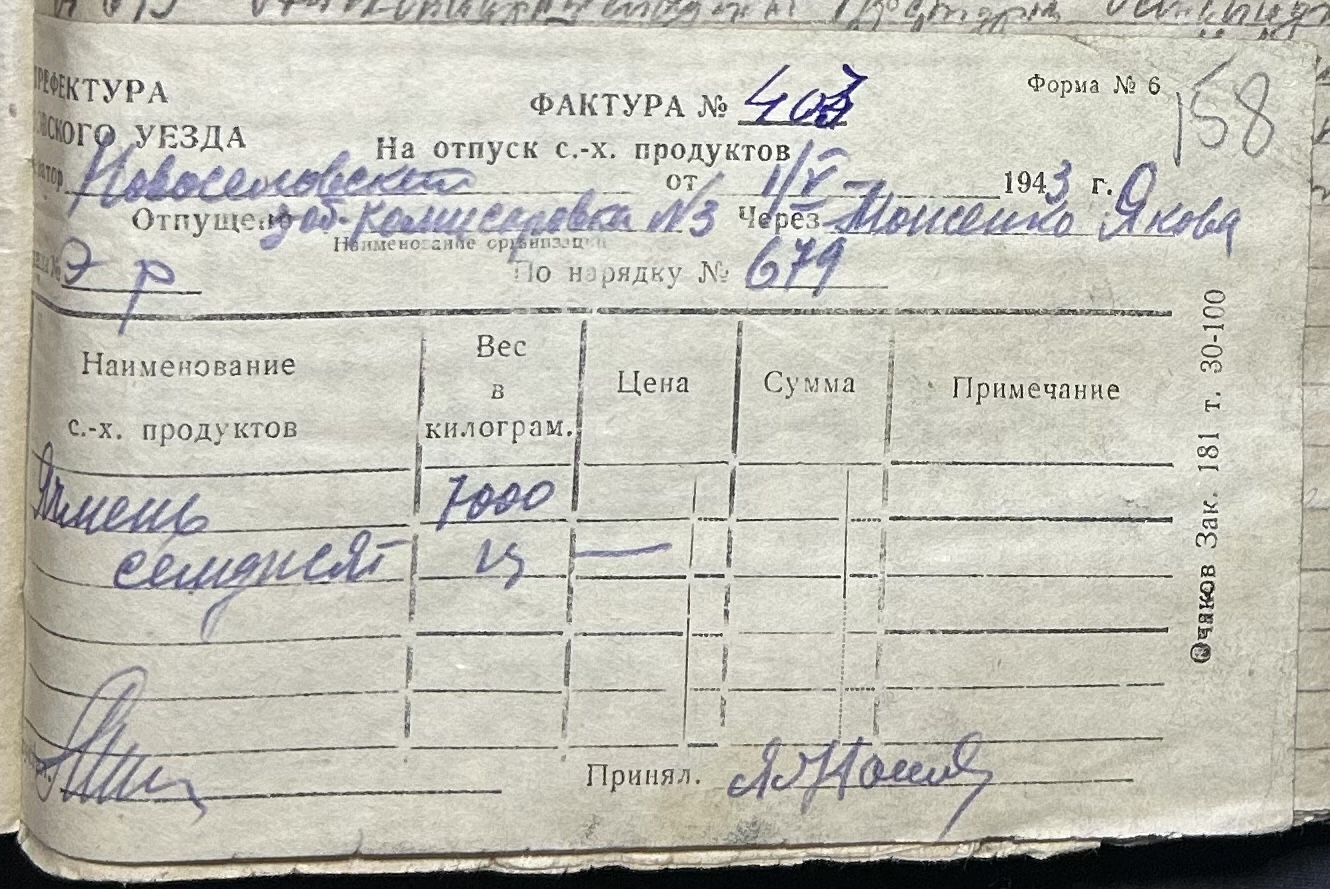 ПРЕФЕКТУРА ФАКТУРА № 403 Форма № 6 158
ВСКОГО УЕЗДА На отпуск с.-х. продуктов
Новоселовский от 1/V – 1943 г.
Отпущено Комисаровка №3 Через Мошенко Якова
Наименование организации
По нарядку № 679
Наименование с.-х. продуктов Вес в килограм. Цена Сумма Примечание
Ячмень 7000
семдисят ц —
Принял.
Очаков Зак. 181 т. 30-100